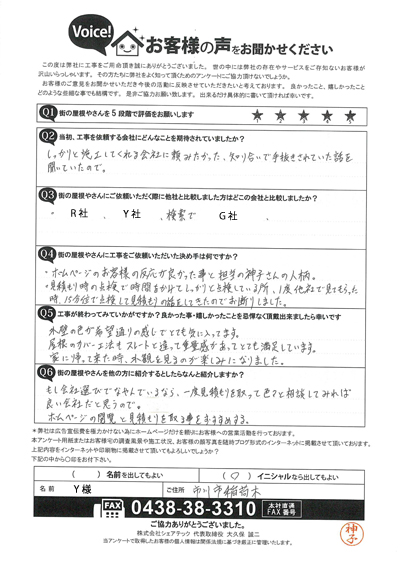 Voice!
お客様の声をお聞かせください
この度は弊社に工事をご用命頂き誠にありがとうございました。世の中には弊社の存在やサービスをご存知ないお客様が
沢山いらっしゃいます。その方たちに弊社をよく知って頂くためのアンケートにご協力頂けないでしょうか。
お客様のご意見をお聞かせいただき今後の活動に反映させていただきたいと考えております。良かったこと、嬉しかったこと
どのような些細な事でも結構です。是非ご協力お願い致します。出来るだけ具体的に書いて頂ければ幸いです。
Q1 街の屋根やさんを5段階で評価をお願いします ★ ★ ★ ★ ★
Q2 当初、工事を依頼する会社にどんなことを期待されていましたか?
しっかりと施工してくれる会社に頼みたかった、知り合いで手抜きされていた話を
聞いていたので。
Q3 街の屋根やさんにご依頼いただく際に他社と比較しました方はどこの会社と比較しましたか?
・R社、Y社、検索でG社、
Q4 街の屋根やさんに工事をご依頼いただいた決め手は何ですか?
・ホームページのお客様の反応が良かった事と担当の神子さんの人柄。
・見積もり時の点検で時間をかけてしっかりと点検している所、1度他社で見てもらった
時、15分位で点検して見積りの話をしてきたのでお断りしました。
Q5 工事が終わってみていかがですか?良かった事・嬉しかったことを忌憚なく頂戴出来ましたら幸いです
外壁の色が希望通りの感じでとても気に入ってます。
屋根のカバー工法もスレートと違って重量感があってとても満足しています。
家に帰って来た時、外観を見るのが楽しみになりました。
Q6 街の屋根やさんを他の方に紹介するとしたらなんと紹介しますか?
もし会社選びでなやんでいるなら、一度見積もりを取って色々と相談してみれば
良い会社だと思うので。
ホームページの閲覧と見積もりを取る事をおすすめする。
*弊社は広告宣伝費を極力かけない為にホームページだけを頼りにお客様への営業活動を行っております。
本アンケート用紙またはお客様宅の調査風景や施工状況、お客様の顔写真を随時ブログ形式のインターネットに掲載させて頂いております。
上記内容をインターネットや印刷物に掲載させて頂いてもよろしいでしょうか?
下記の中から〇印をお付け下さい。
( )名前を出してもよい (〇)イニシャルなら出してもよい
名前 Y様 ご住所 市川市稲荷木
FAX 0438-38-3310 本社直通 FAX番号
ご協力ありがとうございました。
株式会社シェアテック 代表取締役 大久保 誠二
当アンケートで取得したお客様の個人情報は関係法規に基づき厳正に管理いたします。
神子